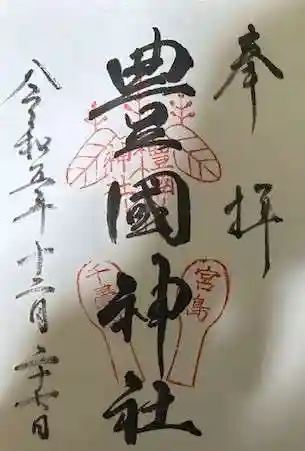 奉拝
豊國神社
令和五年十二月二十七日
宮島
千畳